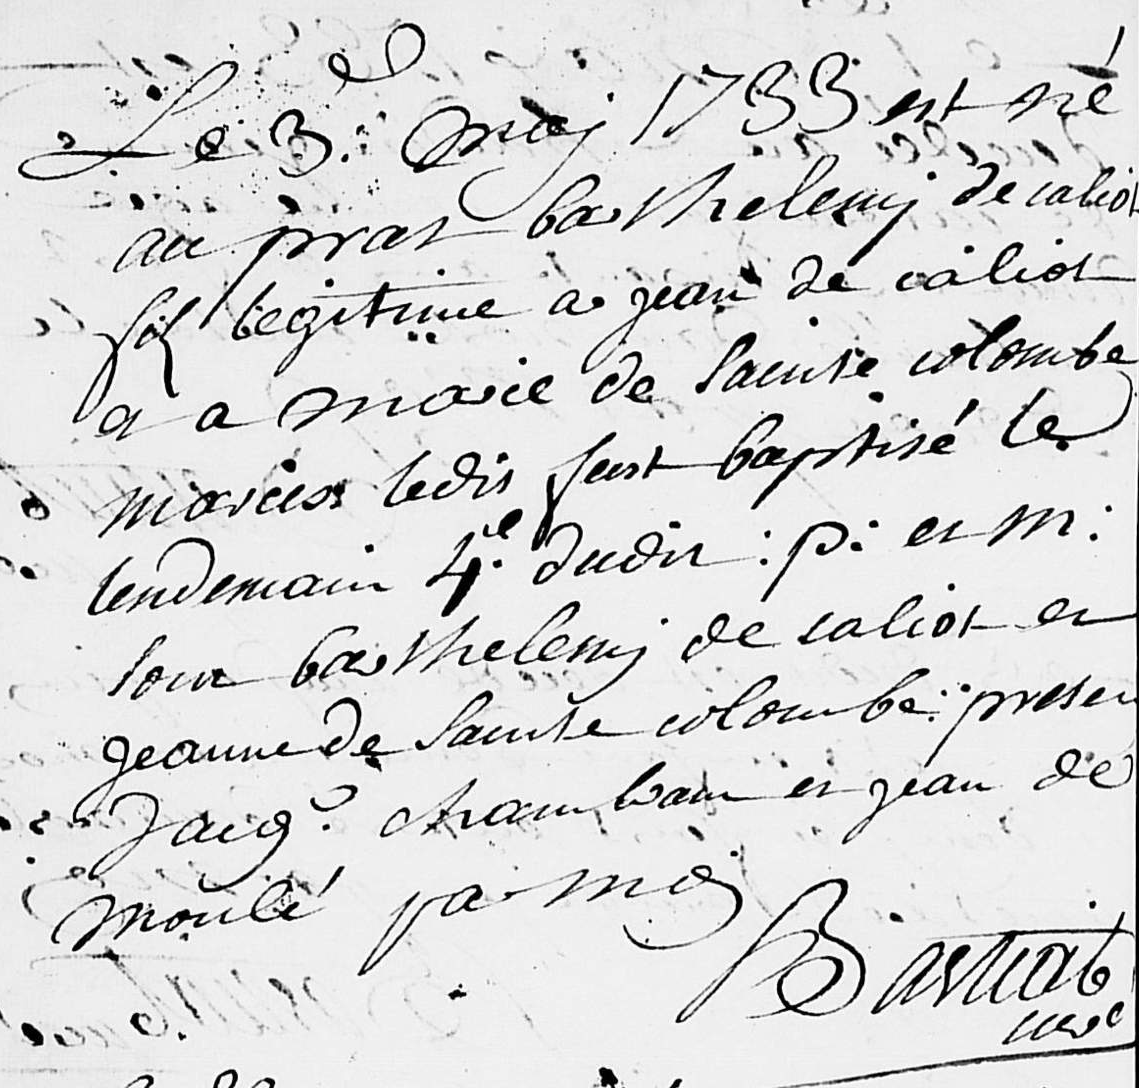 Le 3.e may 1733 est né
au prat barthelemy de caliot
fil legitime a jean de caliot
et a marie de sainte colombe
maries ledit fust baptisé le
lendemain 4.e dudit : p: et m:
sont barthelemy de caliot et
jeanne de sainte colombe: presen
Jacq.s et jean de
moulé par moy
Bastiat
curé